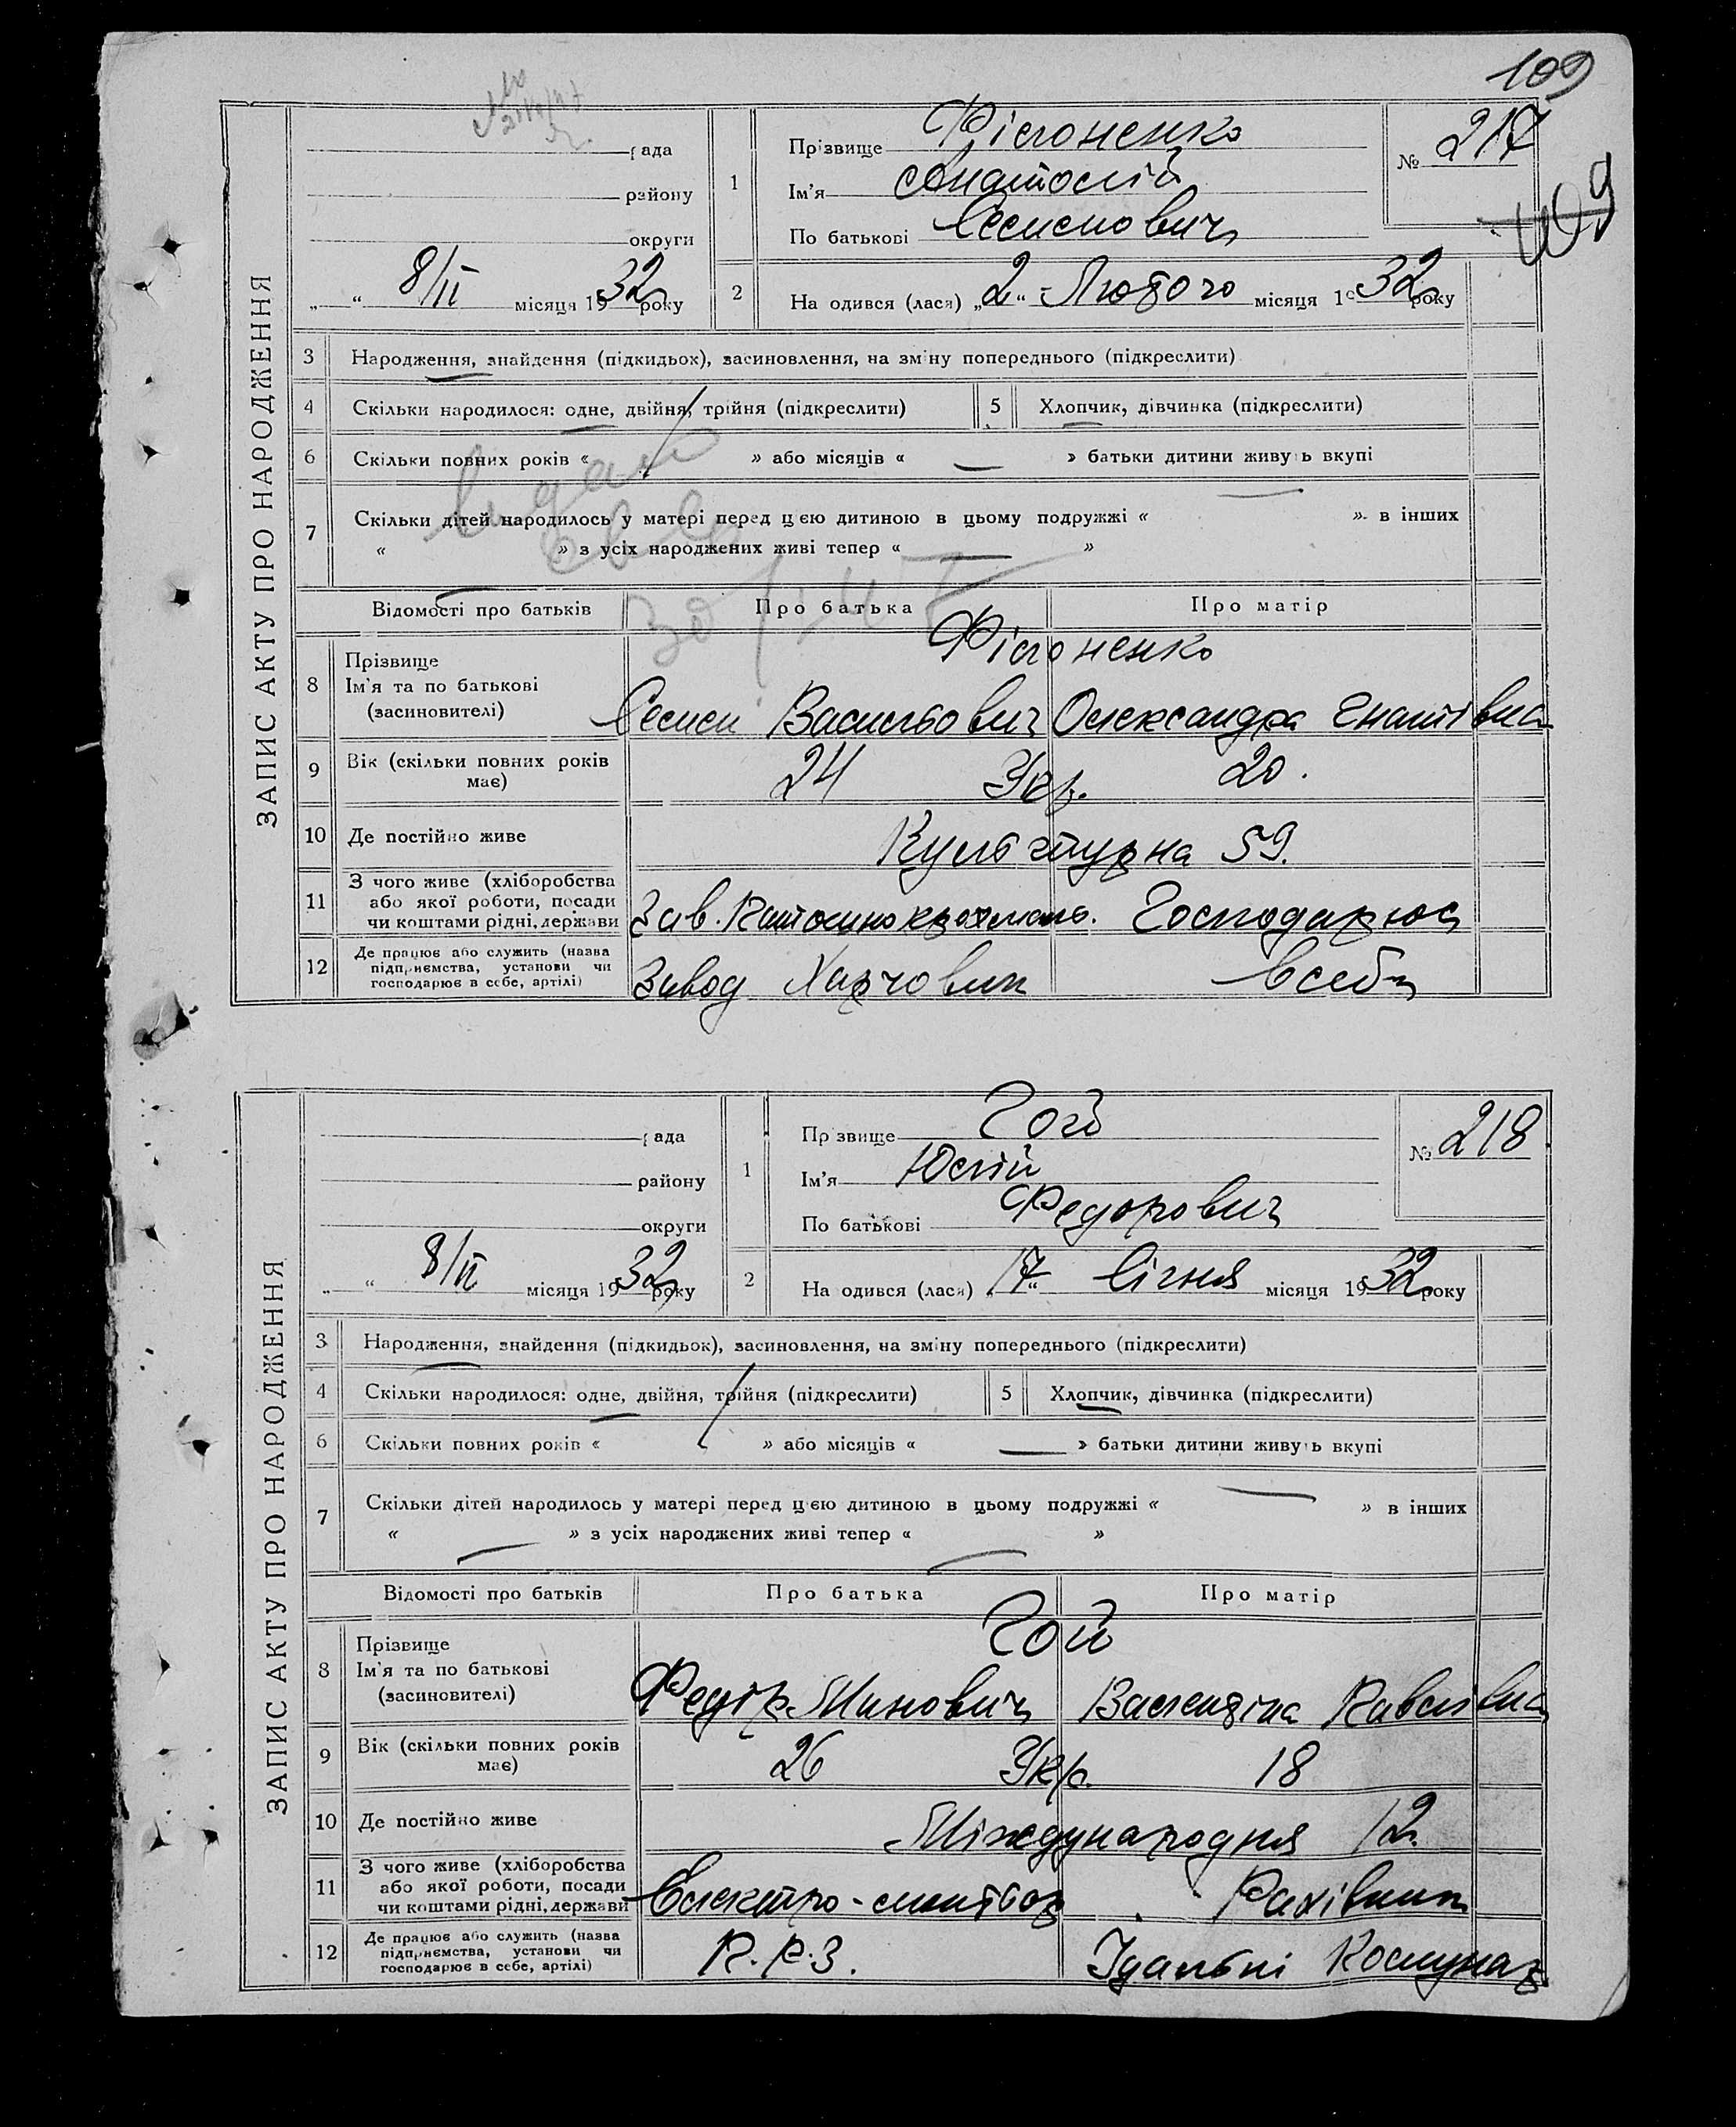 109
ЗАПИС АКТУ ПРО НАРОДЖЕННЯ
рада
району
округи
„ “ 8/II місяця 1932 року
1
Прізвище Філоненко
Ім'я Анатолій
По батькові Семенович
№ 217
109
2
Народився (лася) „2“ Лютого місяця 1932 року
3 Народження, знайдення (підкидьок), засиновлення, на зміну попереднього (підкреслити)
4 Скільки народилося: одне, двійня, трійня (підкреслити) 5 Хлопчик, дівчинка (підкреслити)
6 Скільки повних років « » або місяців « — » батьки дитини живуть вкупі
7 Скільки дітей народилось у матері перед цією дитиною в цьому подружжі « — » в інших
« — » з усіх народжених живі тепер « — »
Відомості про батьків Про батька Про матір
8 Прізвище Ім'я та по батькові (засиновителі)
Філоненко
Семен Васильович Олександра Гнатівна
9 Вік (скільки повних років має) 24 Укр. 20.
10 Де постійно живе Культурна 59.
11 З чого живе (хліборобства або якої роботи, посади чи коштами рідні, держави
Зав. Господарює
12 Де працює або служить (назва підприємства, установи чи господарює в себе, артілі)
Завод Харчовик в себе
ЗАПИС АКТУ ПРО НАРОДЖЕННЯ
рада
району
округи
„ “ 8/II місяця 1932 року
1
Прізвище Гой
Ім'я Юлій
По батькові Федорович
№ 218
2
Народився (лася) „17“ Січня місяця 1932 року
3 Народження, знайдення (підкидьок), засиновлення, на зміну попереднього (підкреслити)
4 Скільки народилося: одне, двійня, трійня (підкреслити) 5 Хлопчик, дівчинка (підкреслити)
6 Скільки повних років « » або місяців « — » батьки дитини живуть вкупі
7 Скільки дітей народилось у матері перед цією дитиною в цьому подружжі « — » в інших
« — » з усіх народжених живі тепер « — »
Відомості про батьків Про батька Про матір
8 Прізвище Ім'я та по батькові (засиновителі)
Гой
Федір Минович Валентіна Павлівна
9 Вік (скільки повних років має) 26 Укр. 18
10 Де постійно живе Міждународня 12.
11 З чого живе (хліборобства або якої роботи, посади чи коштами рідні, держави
Електро-монтьор Рахівник
12 Де працює або служить (назва підприємства, установи чи господарює в себе, артілі)
П.Р.З. Їдальні Комунар